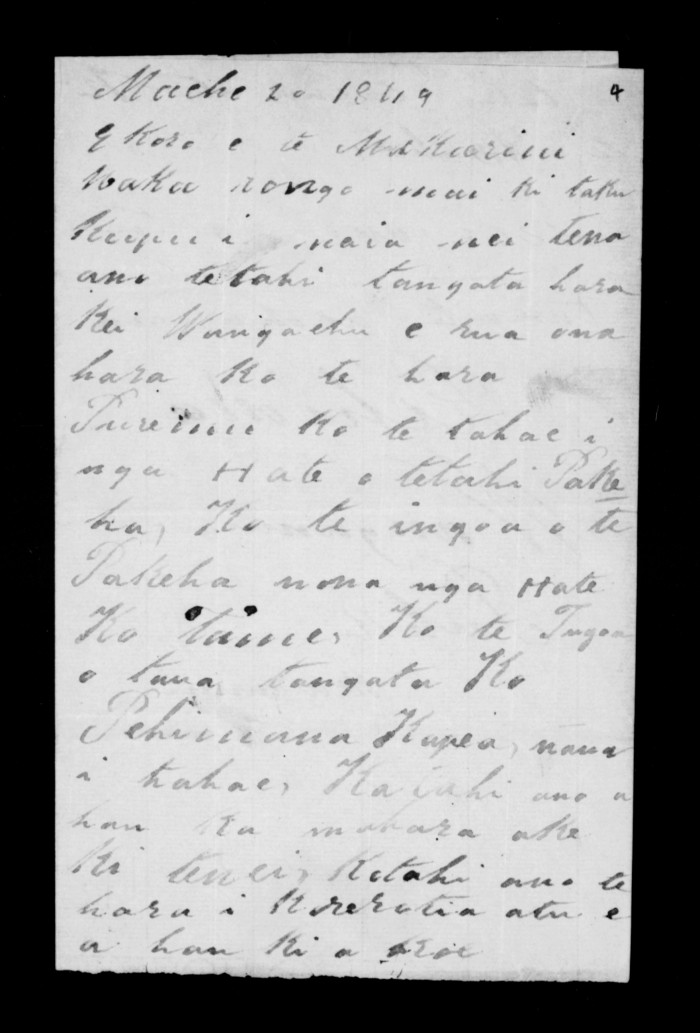 Maehe 20 1849
4
E Koro e te Makarini
Waka rongo mai ki taku
Kupu i naia nei tena
ano tetahi tangata hara
Kei Wangaehu e rua ona
hara Ko te hara
Puremu Ko te tahae i
nga Hate o tetahi Pake
ha, Ko te ingoa o te
Pakeha nona nga Hate
Ko Tame, Ko te Ingoa
o taua tangata Ko
Pehimana Kupea, nana
i tahae, Katahi ano a
hau ka mahara ake
Ki tenei, Kotahi ano te
hara i Korerotia atu e
a hau Ki a Koe